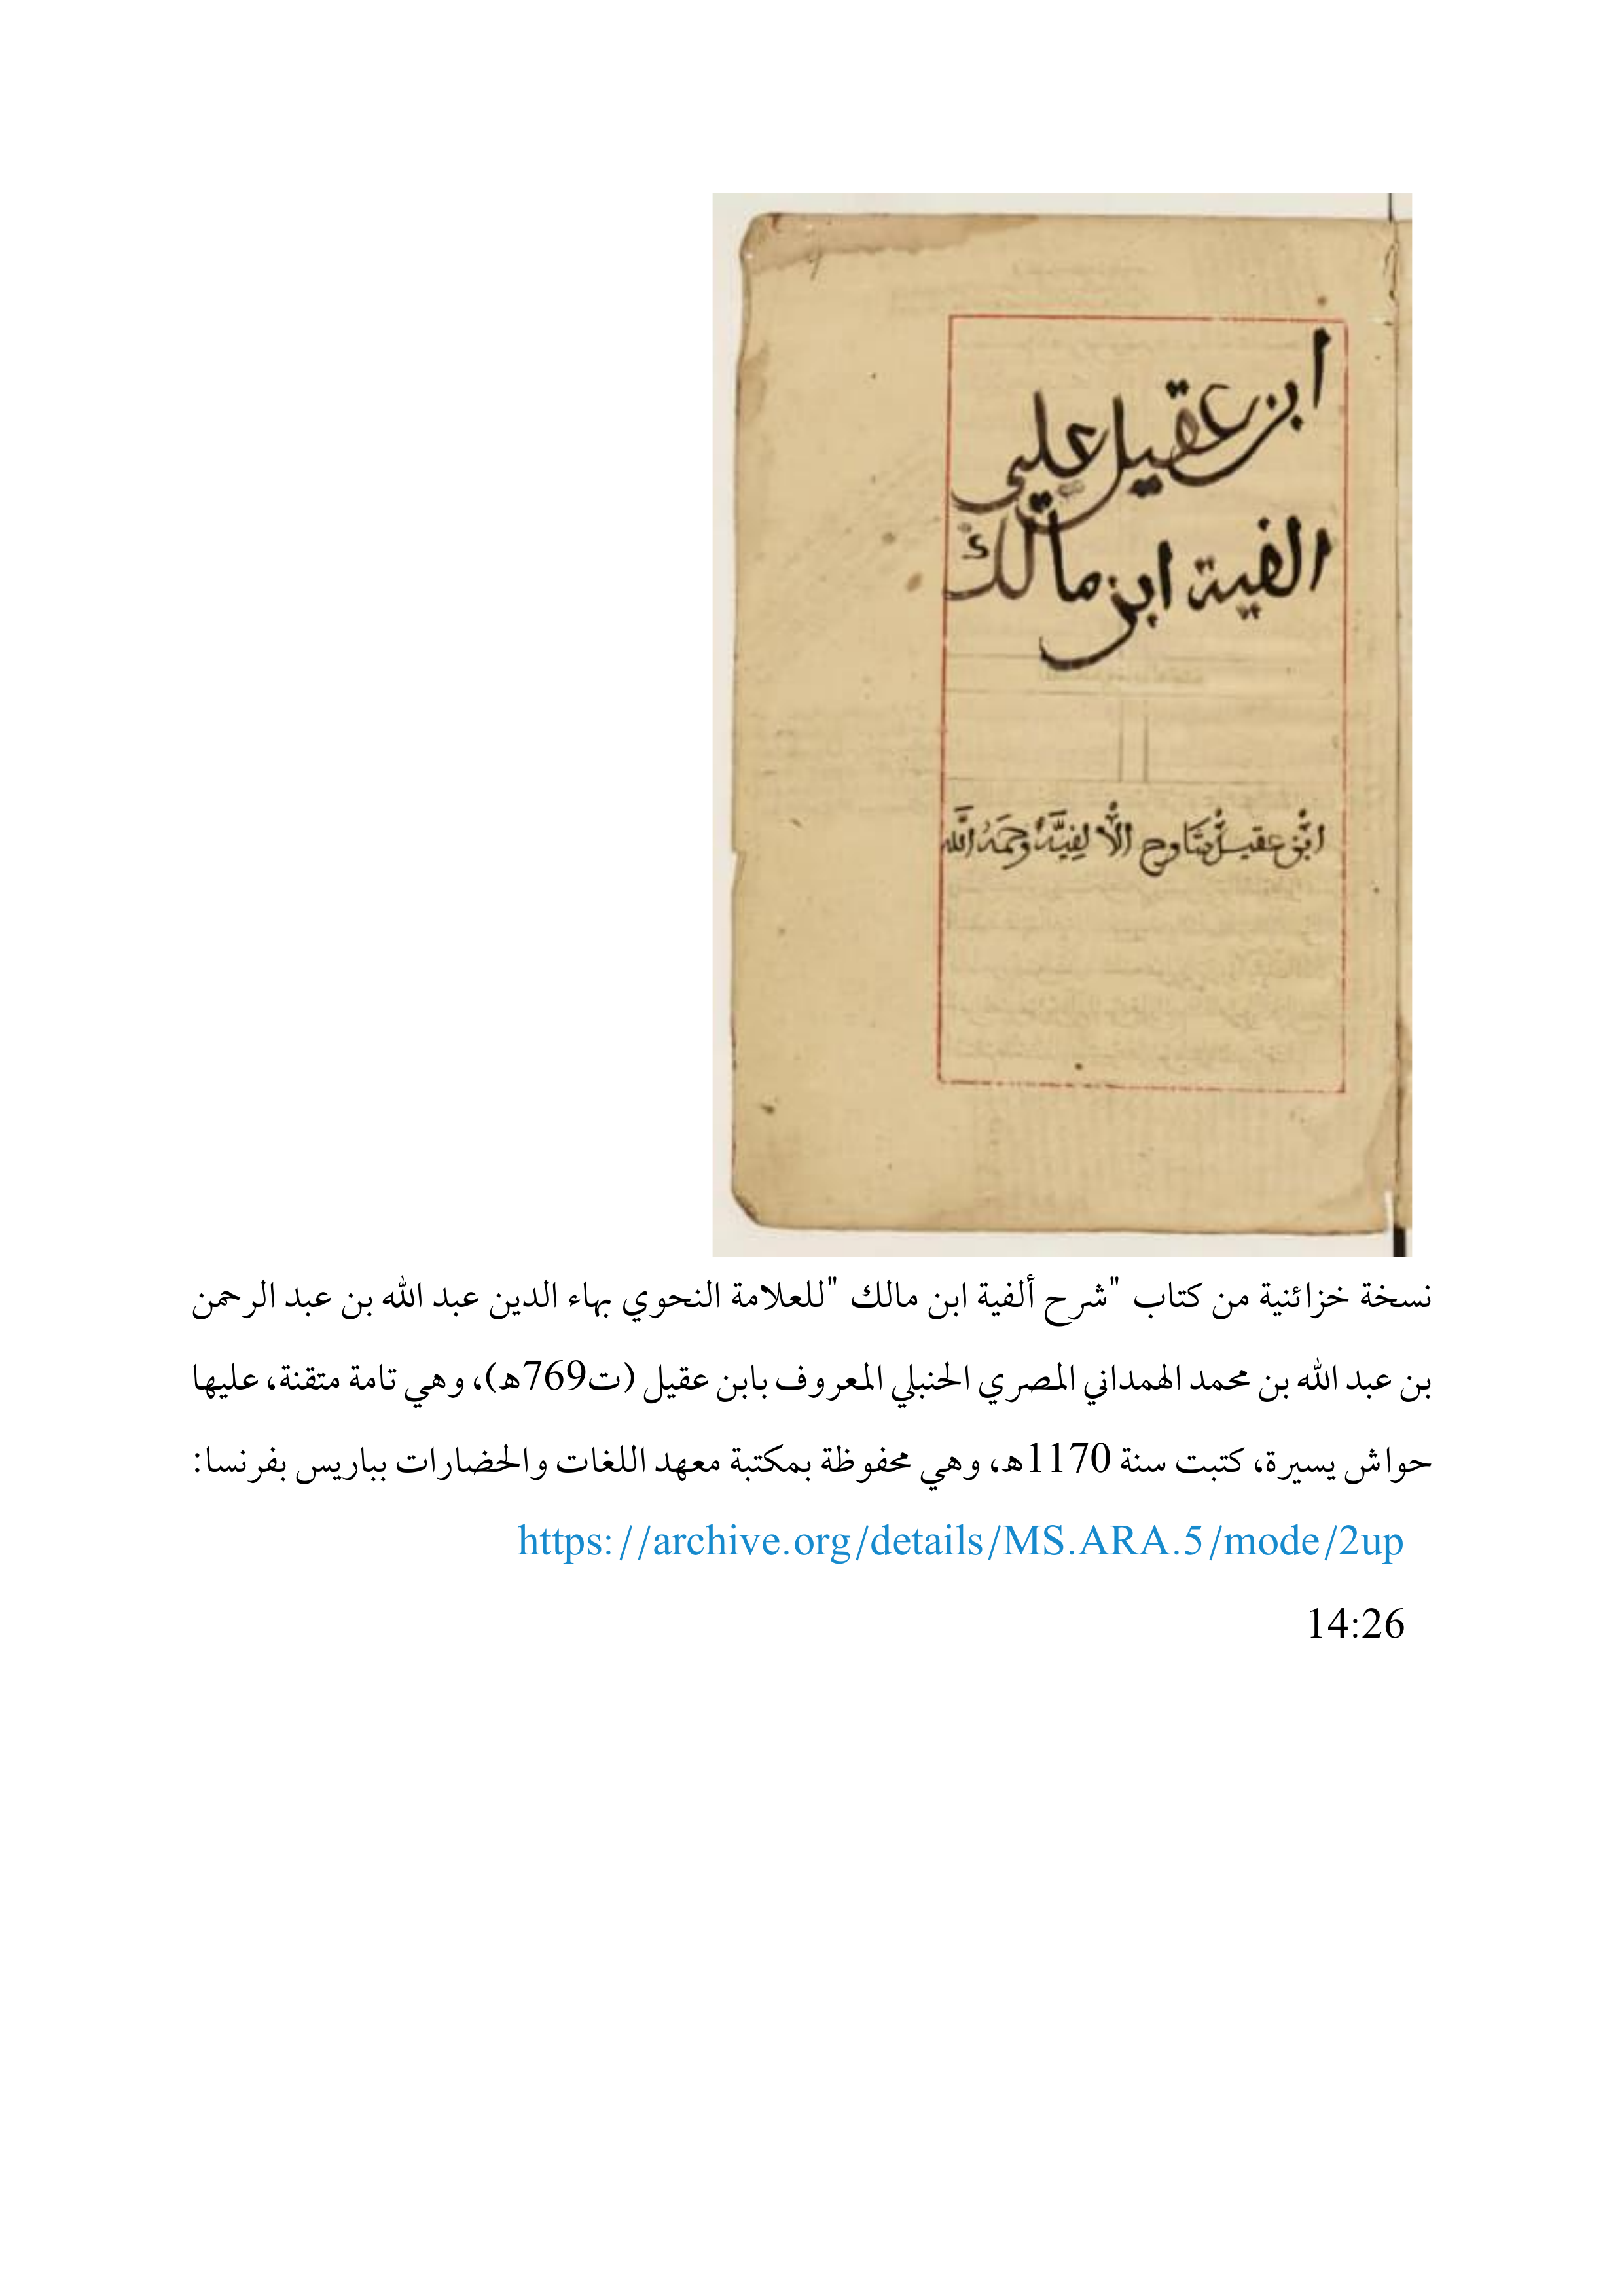 ابن عقيل على
الفية ابن مالك
ابن عقيل شارح الالفية رحمه الله
نسخة خزائنية من كتاب "شرح ألفية ابن مالك "للعلامة النحوي بهاء الدين عبد الله بن عبد الرحمن
بن عبد الله بن محمد الهمداني المصري الحنبلي المعروف بابن عقيل (ت769ه)، وهي تامة متقنة، عليها
حواش يسيرة، كتبت سنة 1170ه، وهي محفوظة بمكتبة معهد اللغات والحضارات بباريس بفرنسا:
https://archive.org/details/MS.ARA.5/mode/2up
14:26